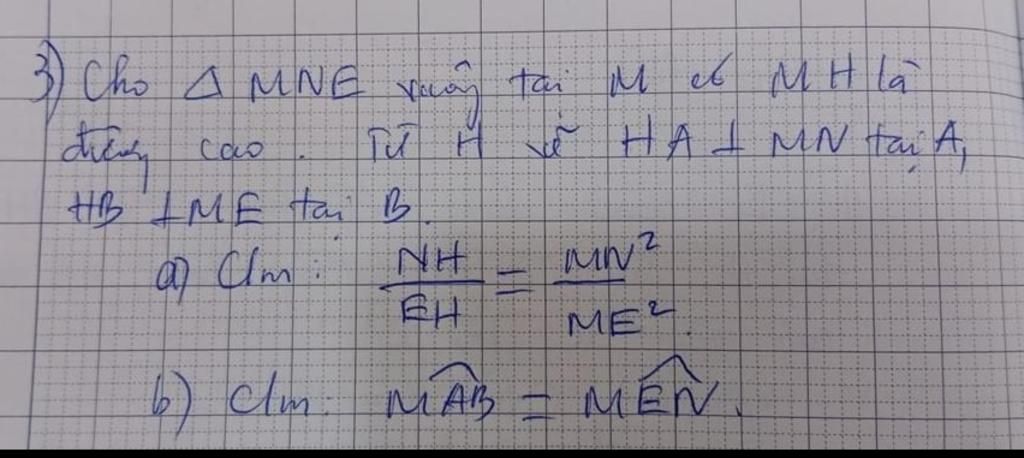 3) Cho Δ MNE vuông tại M có MH là
đường cao. Từ H vẽ HA ⊥ MN tại A,
HB ⊥ ME tại B.
a) Cm: NH/EH = MN²/ME².
b) Cm: \widehat{MAB} = \widehat{MEN}.